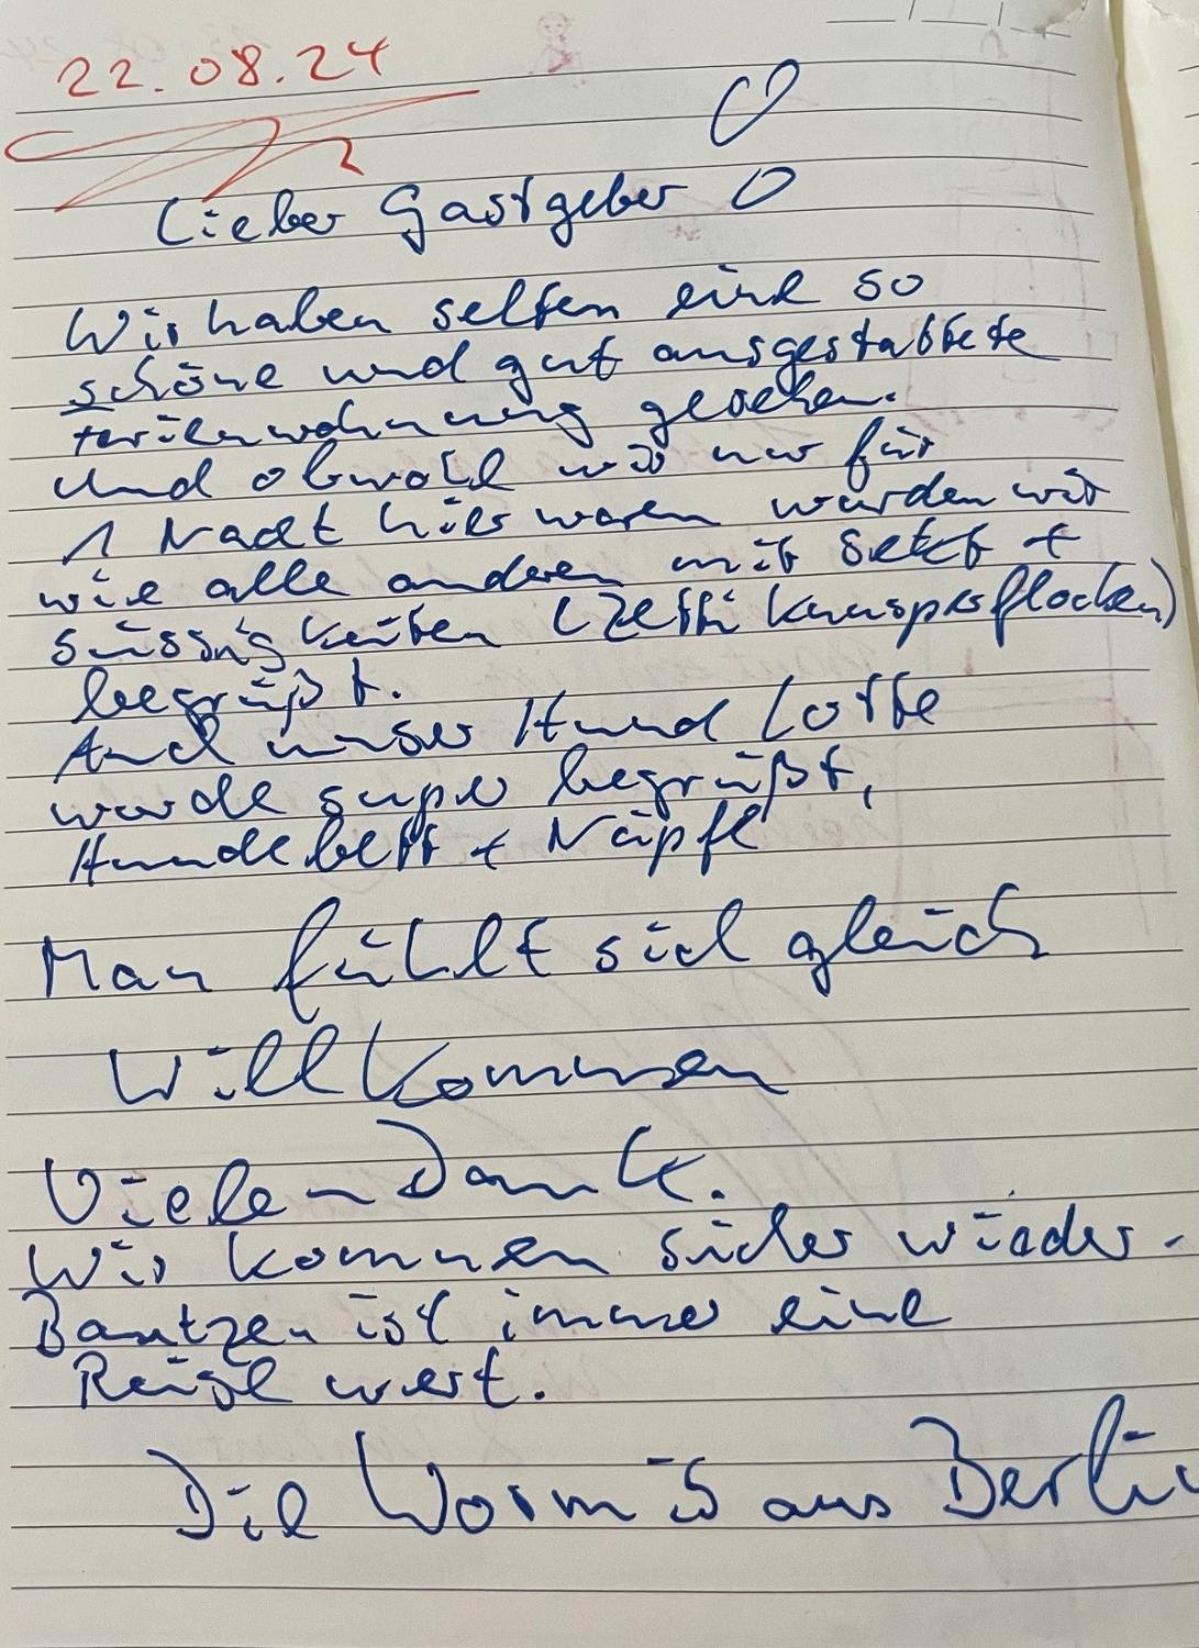 22.08.24
Lieber Gastgeber
Wir haben selten eine so
schöne und gut ausgestattete
Ferienwohnung gesehen.
Und obwohl wir nur für
1 Nacht hier waren wurden wir
wie alle anderen mit Sekt +
Süssigkeiten (Zetti Knusperflocken)
begrüßt.
Auch unser Hund Lotte
wurde super begrüßt,
Hundebett + Näpfe
Man fühlt sich gleich
Willkommen
Vielen Dank.
Wir kommen sicher wieder.
Bautzen ist immer eine
Reise wert.
Die aus Berlin